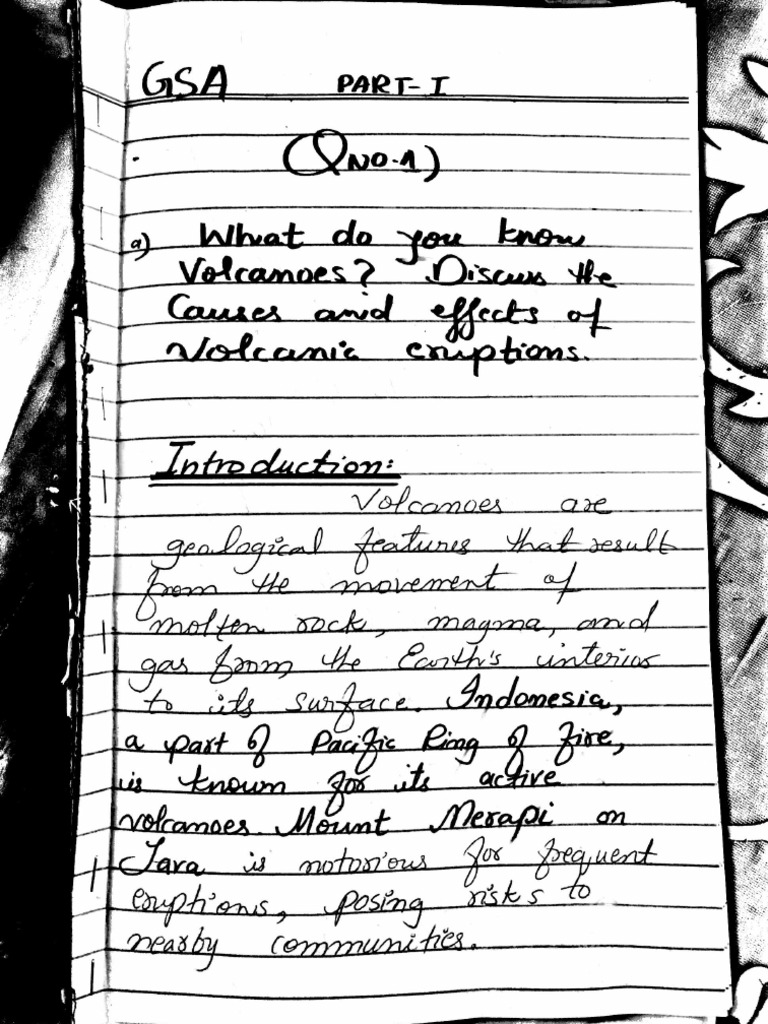 GSA PART-I
Q NO.1)
a) What do you know
Volcanoes? Discuss the
Causes and effects of
Volcanic eruptions.
Introduction:
Volcanoes are
geological features that result
from the movement of
molten rock, magma, and
gas from the Earth's interior
to its surface. Indonesia,
a part of Pacific Ring of fire,
is known for its active
volcanoes. Mount Merapi on
Java is notorious for frequent
eruptions, posing risks to
nearby communities.